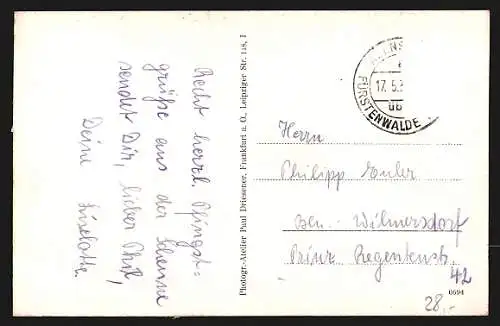 Recht herzl. Pfingst=
grüße aus der Scheune
sendet Dir, lieber Phil,
Deine Liselotte.
Photogr.-Atelier Paul Driesener, Frankfurt a. O., Leipziger Str. 148, I
17.5.3
üb
FÜRSTENWALDE
Herrn
Philipp Euler
Bln.- Wilmersdorf
Prinz Regentenstr.
42
0594
28,-